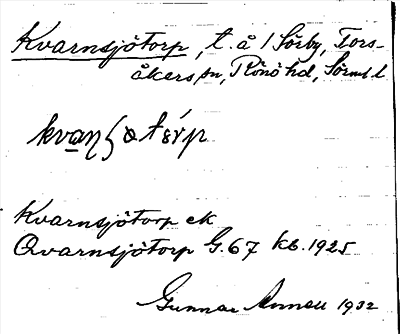 Kvarnsjötorp, t. å 1 Sörby, Tors-
åkers sn, Rönö hd, Sörml. l.
Kvarnsjötorp ek
Qvarnsjötorp G. 67 kb. 1925
Gunnar 1932